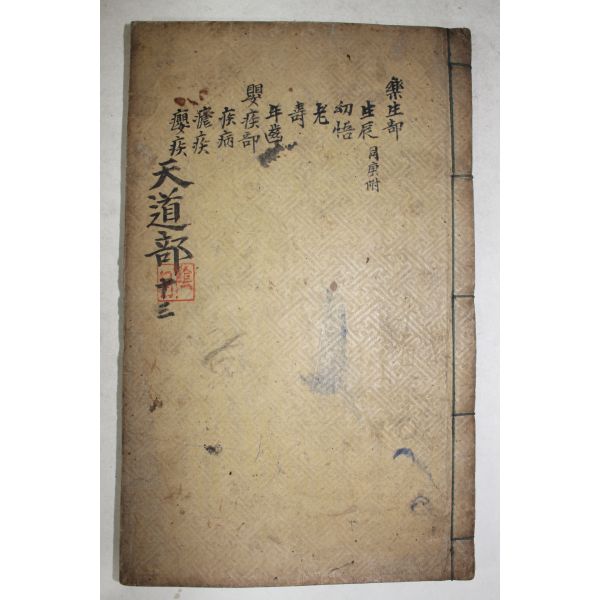 樂生部
生辰 同庚附
幼悟
老
壽
年齒
嬰疾部
疾病
瘧疾
癭疾
天道部 十三